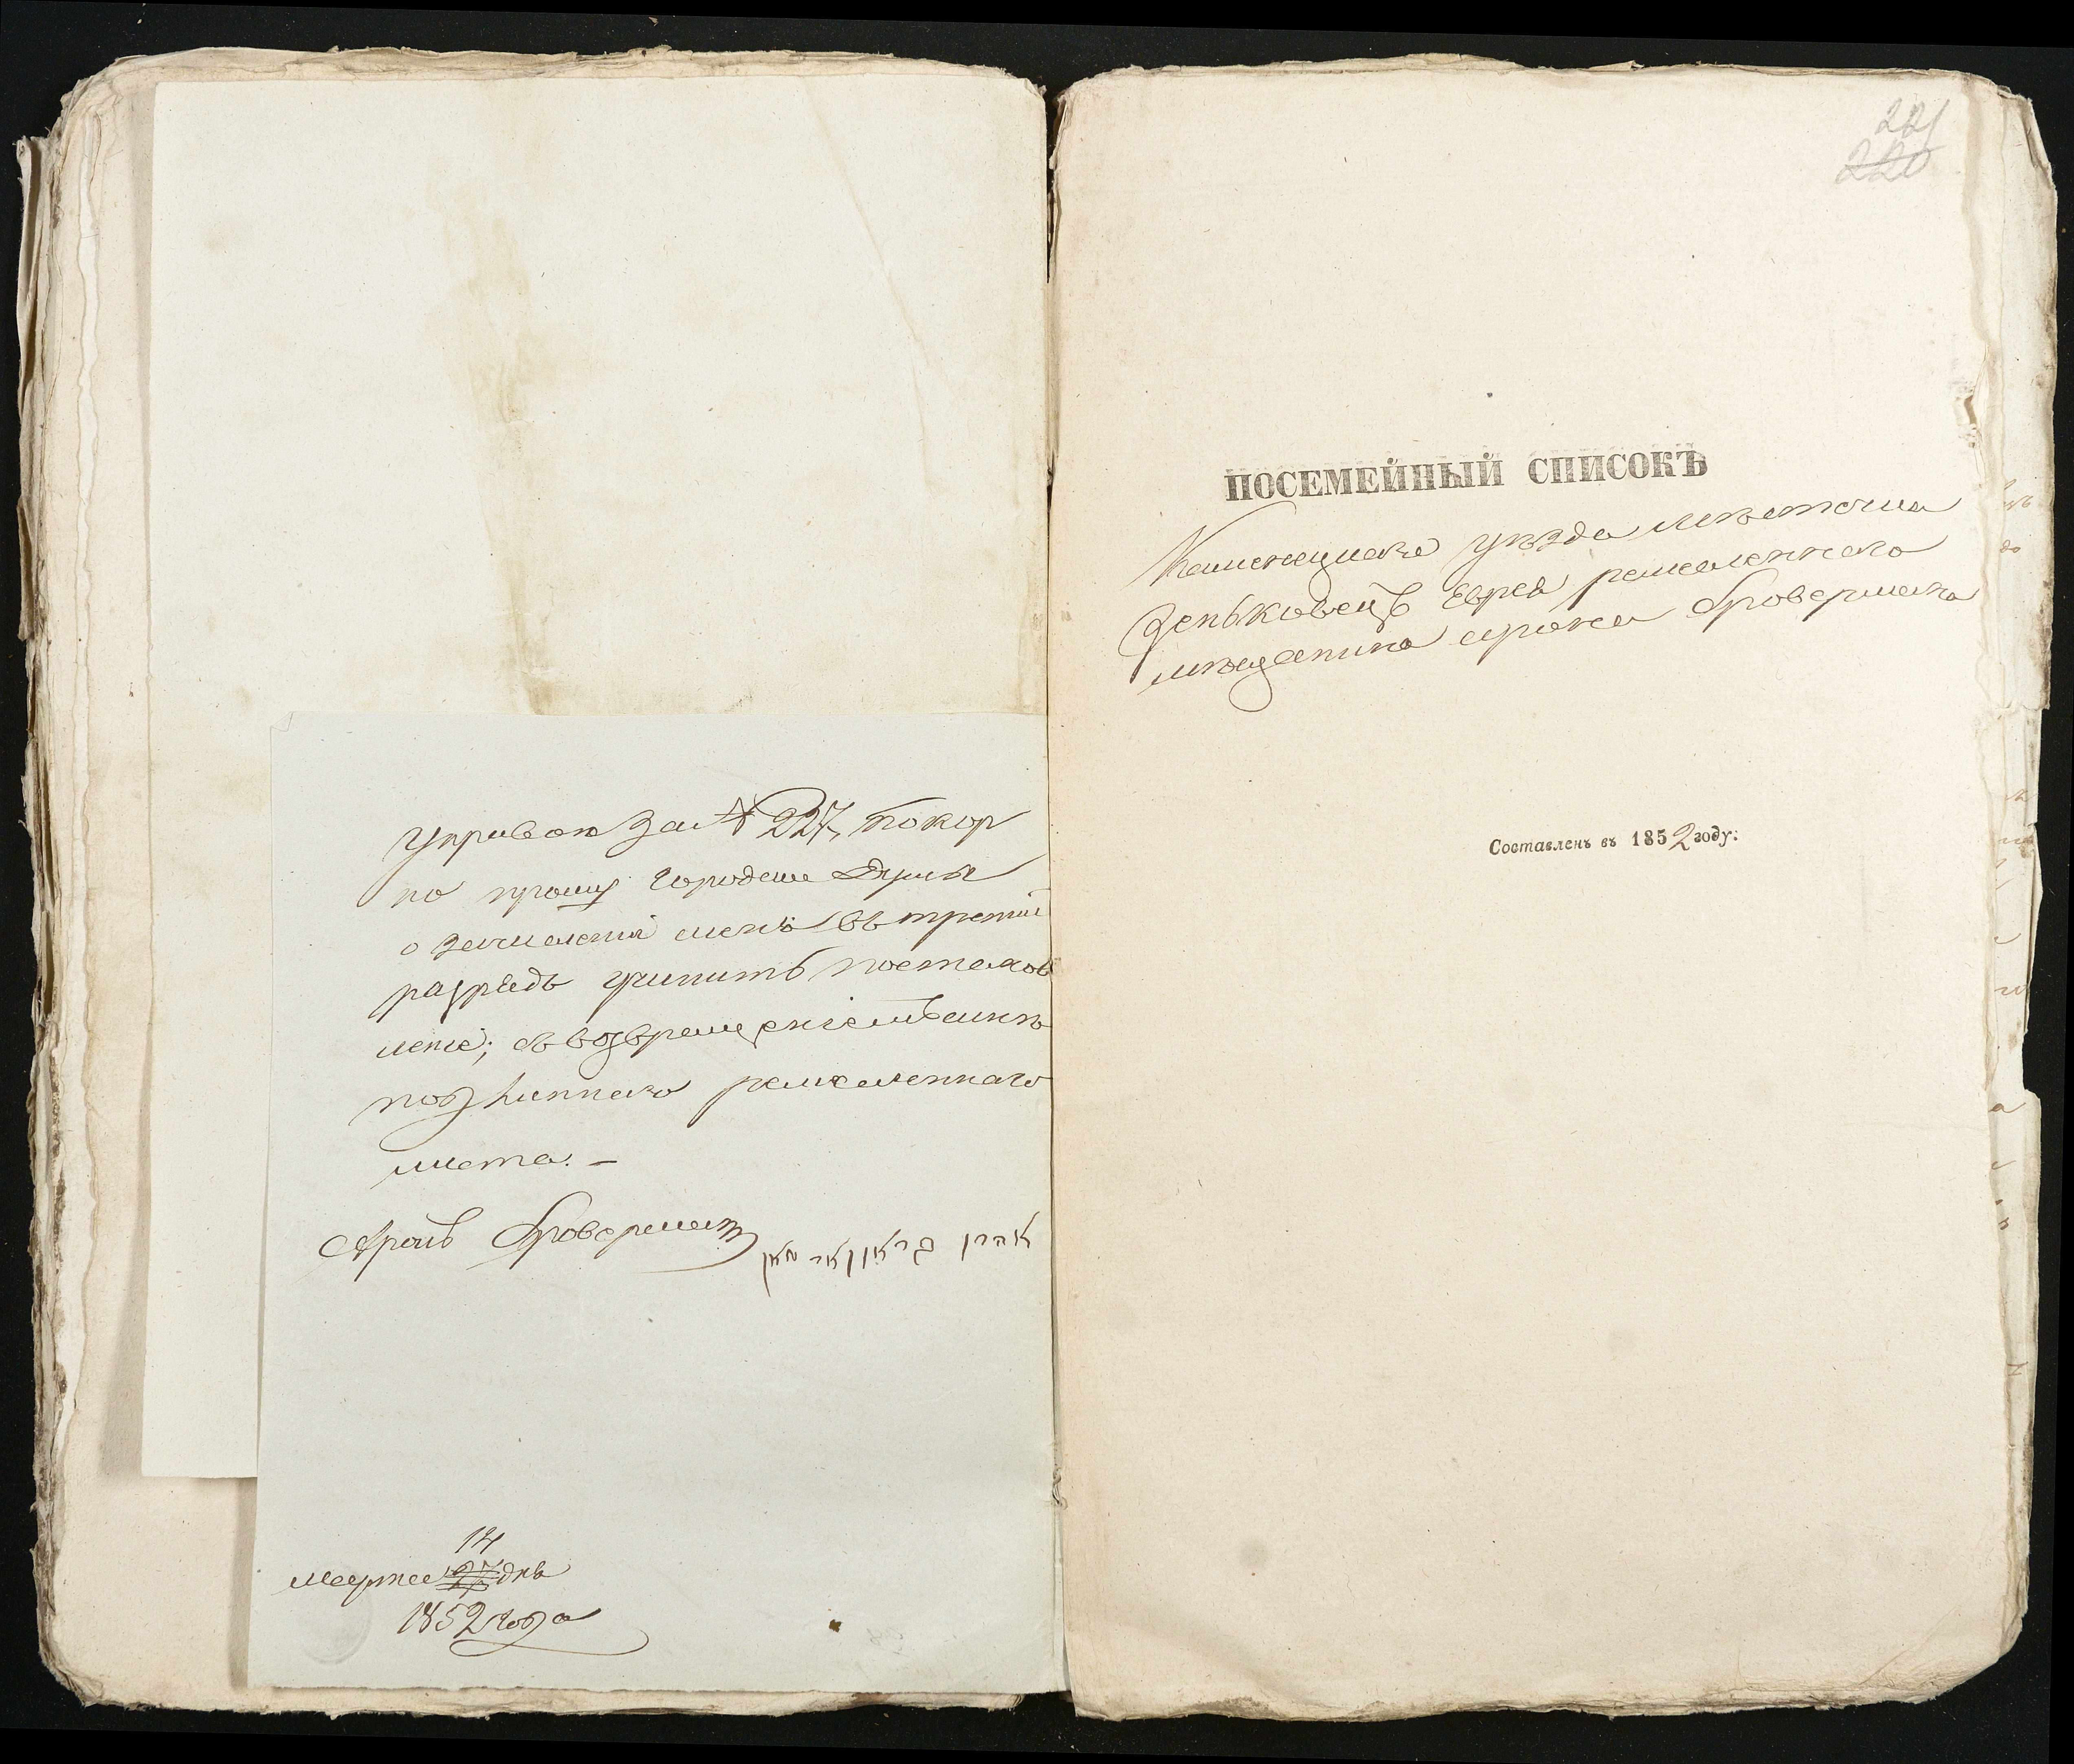 управою за № 227, покор
но прошу городскую Думу
о зачисленіи меня въ третій
разрядъ учинить постанов
леніе; съ возвращеніемъ мнѣ
подлиннаго ремесленнаго
листа. –
Аронъ Броверманъ אהרן בראווארמאן
14
Марта 27 дня
1852 года
221
220
ПОСЕМЕЙНЫЙ СПИСОКЪ
Каменецкаго уѣзда мѣстечка
Зеньковецъ Еврея ремесленнаго
мѣщанина Арона Бровермана
Составленъ въ 1852 году: